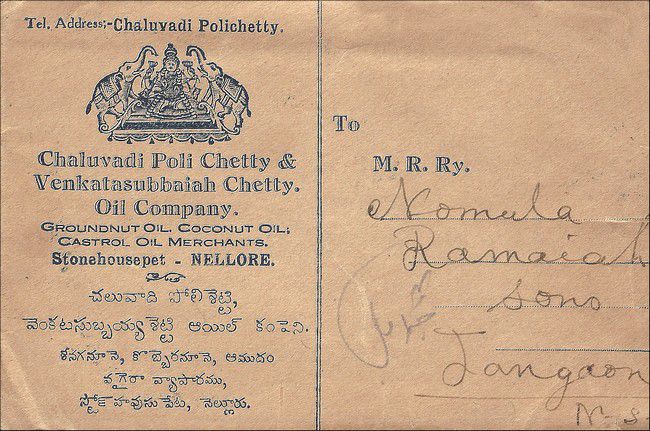 Tel. Address;-Chaluvadi Polichetty.
Chaluvadi Poli Chetty &
Venkatasubbaiah Chetty.
Oil Company.
GROUNDNUT OIL, COCONUT OIL;
CASTROL OIL MERCHANTS.
Stonehousepet - NELLORE.
చలువాది పోలిశెట్టి,
వెంకటసుబ్బయ్యశెట్టి ఆయిల్ కంపెని.
శీసగనూనె, కొబ్బెరనూనె, ఆముదం
వగైరా వ్యాపారము,
స్టోన్ హవుసు పేట, నెల్లూరు.
To
M. R. Ry.
Nomula
Ramaiah
sons
Jangaon
N. S.